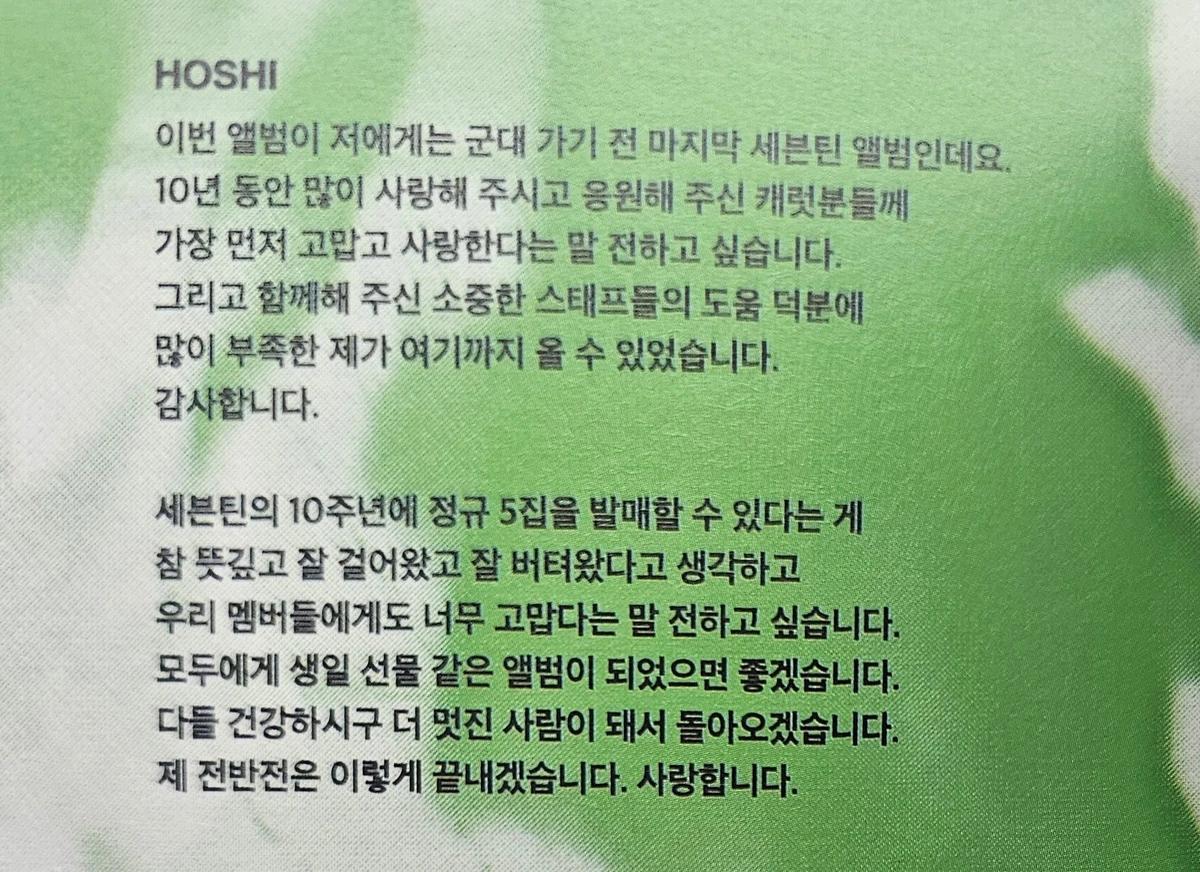 HOSHI
이번 앨범이 저에게는 군대 가기 전 마지막 세븐틴 앨범인데요.
10년 동안 많이 사랑해 주시고 응원해 주신 캐럿분들께
가장 먼저 고맙고 사랑한다는 말 전하고 싶습니다.
그리고 함께해 주신 소중한 스태프들의 도움 덕분에
많이 부족한 제가 여기까지 올 수 있었습니다.
감사합니다.
세븐틴의 10주년에 정규 5집을 발매할 수 있다는 게
참 뜻깊고 잘 걸어왔고 잘 버텨왔다고 생각하고
우리 멤버들에게도 너무 고맙다는 말 전하고 싶습니다.
모두에게 생일 선물 같은 앨범이 되었으면 좋겠습니다.
다들 건강하시구 더 멋진 사람이 돼서 돌아오겠습니다.
제 전반전은 이렇게 끝내겠습니다. 사랑합니다.